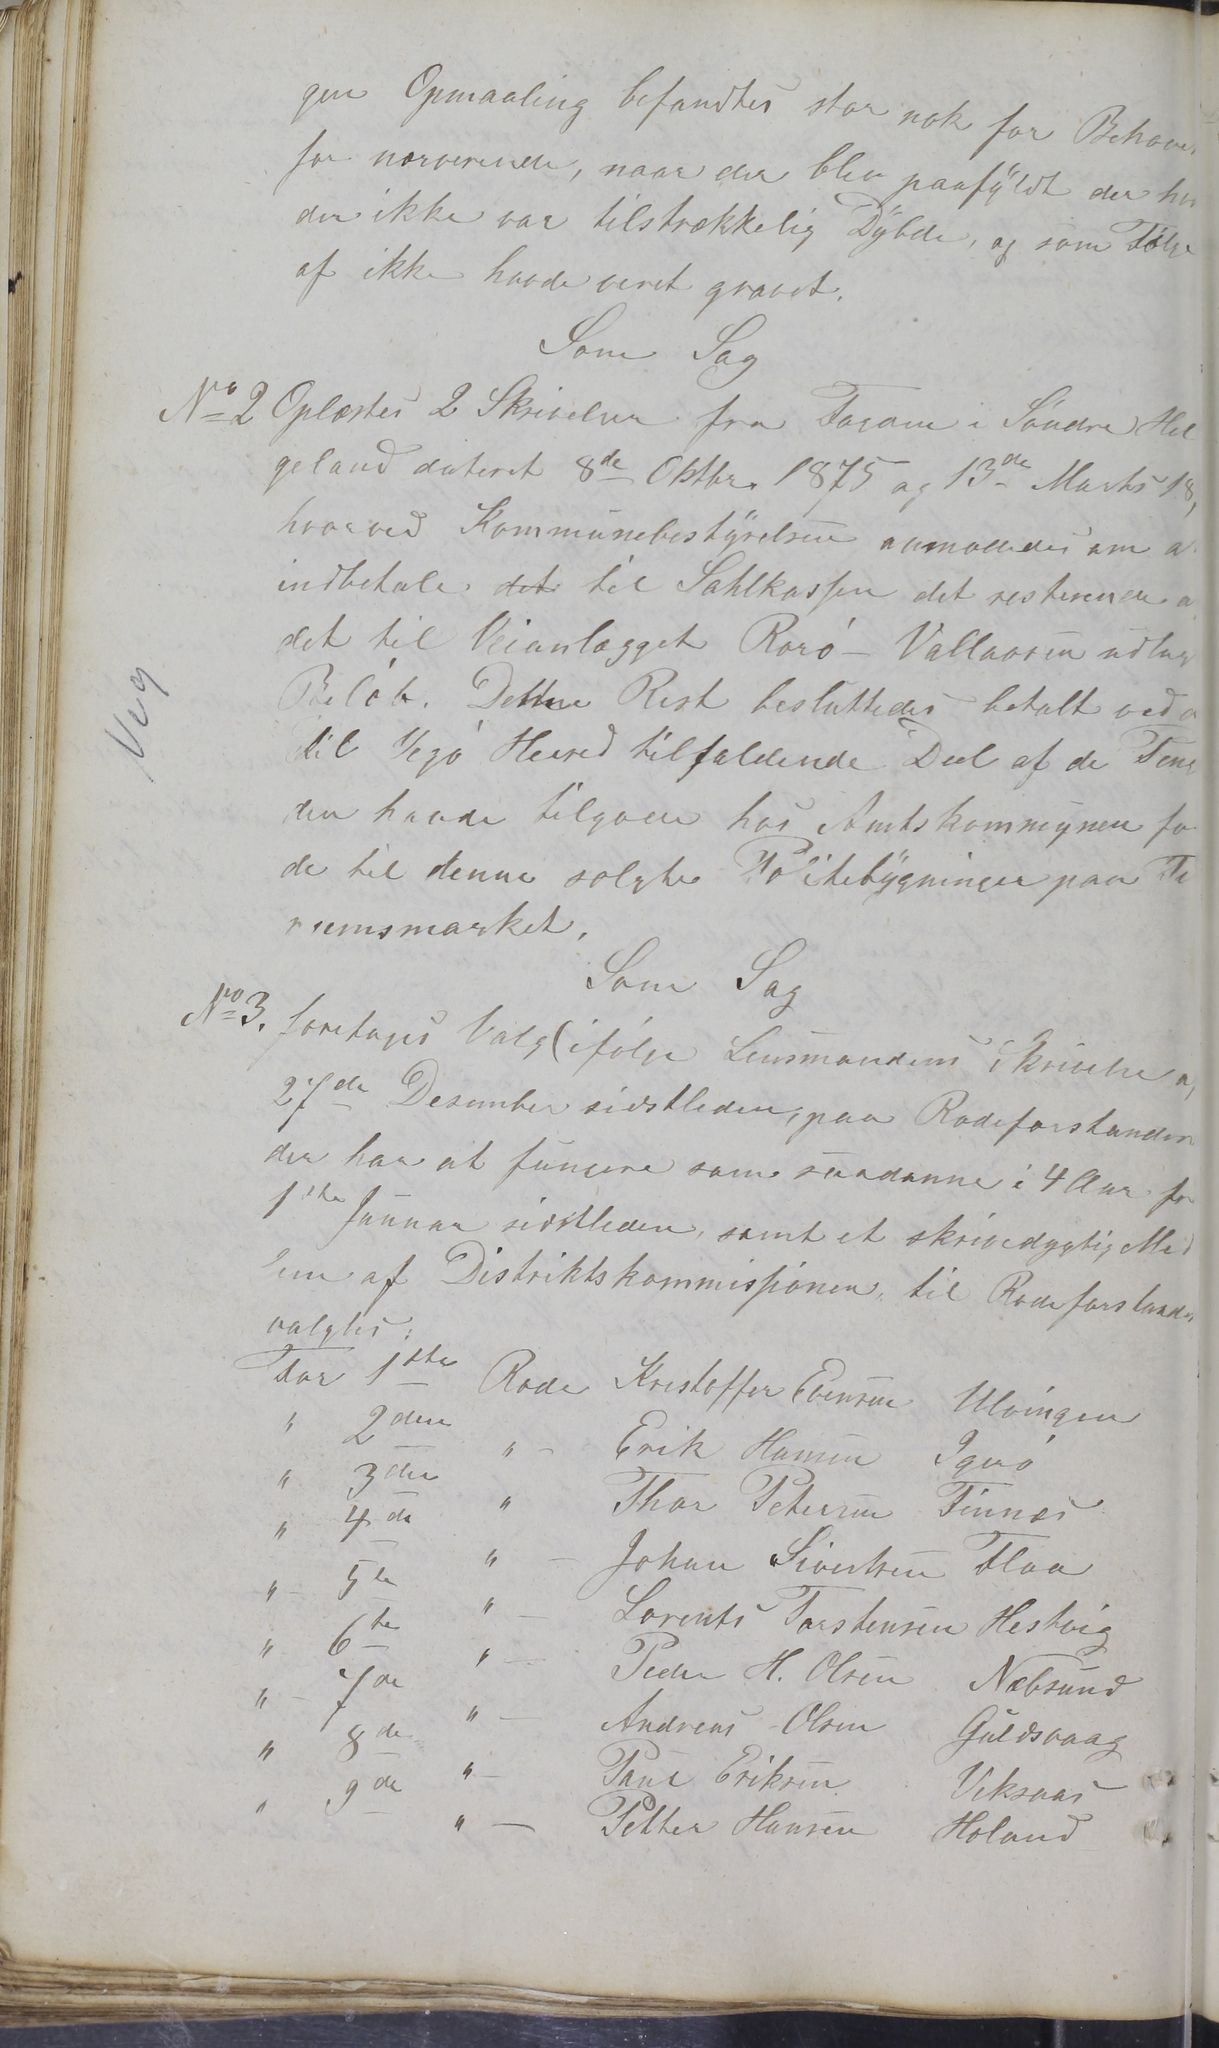 gen Opmaaling befandtes stor nok for Behove
for nærverende, naar der blev paafyldt der hvo
der ikke var tilstrækkelig Dybde, og som Følge
af ikke havde veret gravet.
Som Sag
No 2 Oplæstes 2 Skrivelser fra Fogden i Søndre Hel
geland dateret 8de Oktbr. 1875 og 13de Marts 18,
hvorved Kommunebestyrelsen anmodedes om a
indbetale det til Sahlkassen det resterende a
det til Veianlægget Rorö - Vallaosen udlag
Belöb. Denne Rest besluttedes betalt ved
til Vegö Herred tilfaldende Deel af de
der havde tilgode hos Amtskommunen fo
de til denne solgte bygninger paa
rumsmarket.
Veg
Som Sag
No 3. foretages Valg (ifölge Lensmandens Skrivelse a,
27de Desember sidstleden, paa Rodeforstander
der har at fungere som saadanne i 4 Aar fr
1ste Januar sidstleden, samt et skrivedygtig Med
lem af Distriktskommissionen, til Rodeforstander
valgtes:
For 1ste Rode Kristoffer Evensen Ulvingen
" 2den " - Erik Hansen Igerö
" 3die " Thor Petersen Finnæs
" 4de " - Johan Sivertsen Floa
" - 5te " - Lorents Torstensen Hestvig
" 6te " - Peder H. Olsen Næbsund
" - 7de " - Andreas Olsen Guldsvaag
" 8de " - Paul Eriksen Viksaas
" 9de " - Petter Hansen Holand